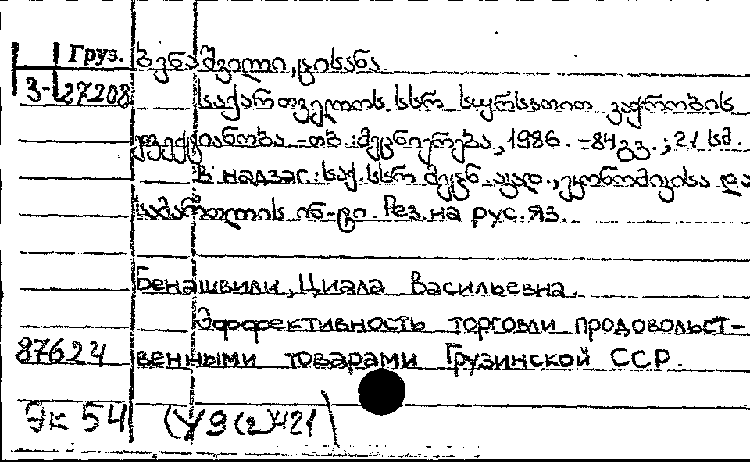 Груз. ბენაშვილი, ციხანა
3-27208 საქართველოს სსრ სურსათით ვაჭრობის
ეფექტიანობა. -თბ.: მეცნიერება, 1986. -84გვ.; 21 სმ.
В надзаг.: საქ. სსრ მეცნ. აკად., ეკონომიკისა და
სამართლის ინ-ტი. Рез. на рус. яз.
Бенашвили, Циала Васильевна.
Эффективность торговли продовольст-
87624 венными товарами Грузинской ССР.
Эк 54 (У9(2)421)